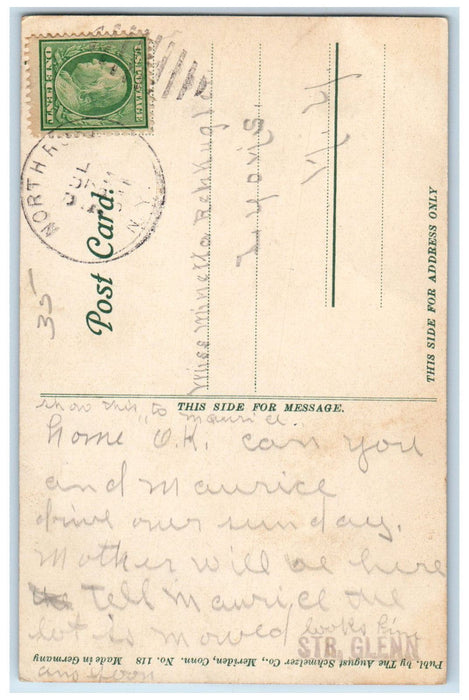 U.S. POSTAGE
ONE CENT
NORTH RO
N.Y.
35
Post Card.
Miss Minetta Rehkugler
Lyons
N.Y.
THIS SIDE FOR ADDRESS ONLY
THIS SIDE FOR MESSAGE.
show this "to Maurice.
home O.K. can you
and Maurice
drive over sunday.
Mother will be here
Tell Maurice the
lot is mowed looks fine
STR. GLENN
Publ. by The August Schmelzer Co., Meriden, Conn. No. 118 Made in Germany